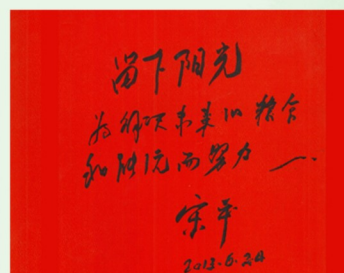 留下阳光
为解决未来的粮食
和能源而努力
宋平
2013.6.24